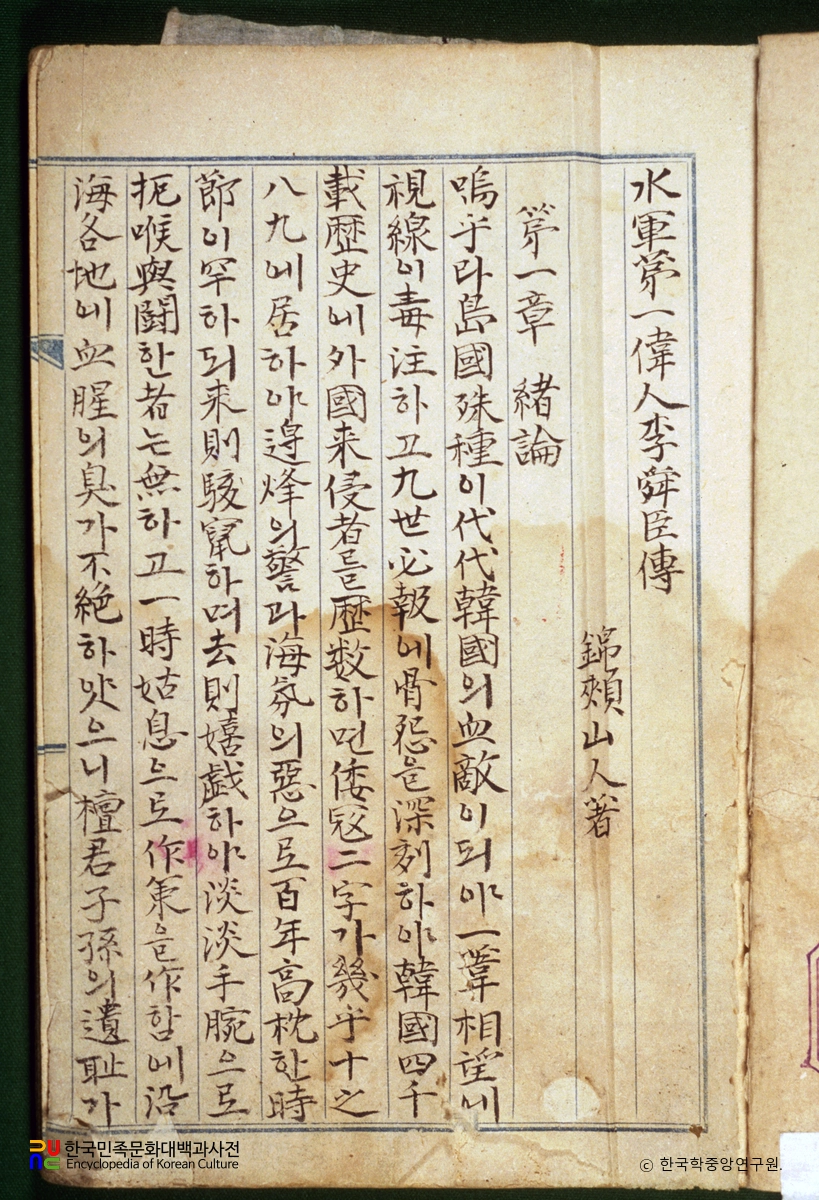 水軍第一偉人李舜臣傳
錦頰山人著
第一章 緖論
嗚乎라島國殊種이代代韓國의血敵이되야一葦相望에
視線이毒注하고九世必報에骨怨을深刻하야韓國四千
載歷史에外國來侵者를歷数하면倭寇二字가幾乎十之
八九에居하야邊烽의警과海氛의惡으로百年高枕한時
節이罕하되来則駭竄하며去則嬉戱하야淡淡手腕으로
扼喉與鬪한者는無하고一時姑息으로作策을作함에沿
海各地에血腥의臭가不絶하얏으니檀君子孫의遺耻가
한국민족문화대백과사전
Encyclopedia of Korean Culture
© 한국학중앙연구원.